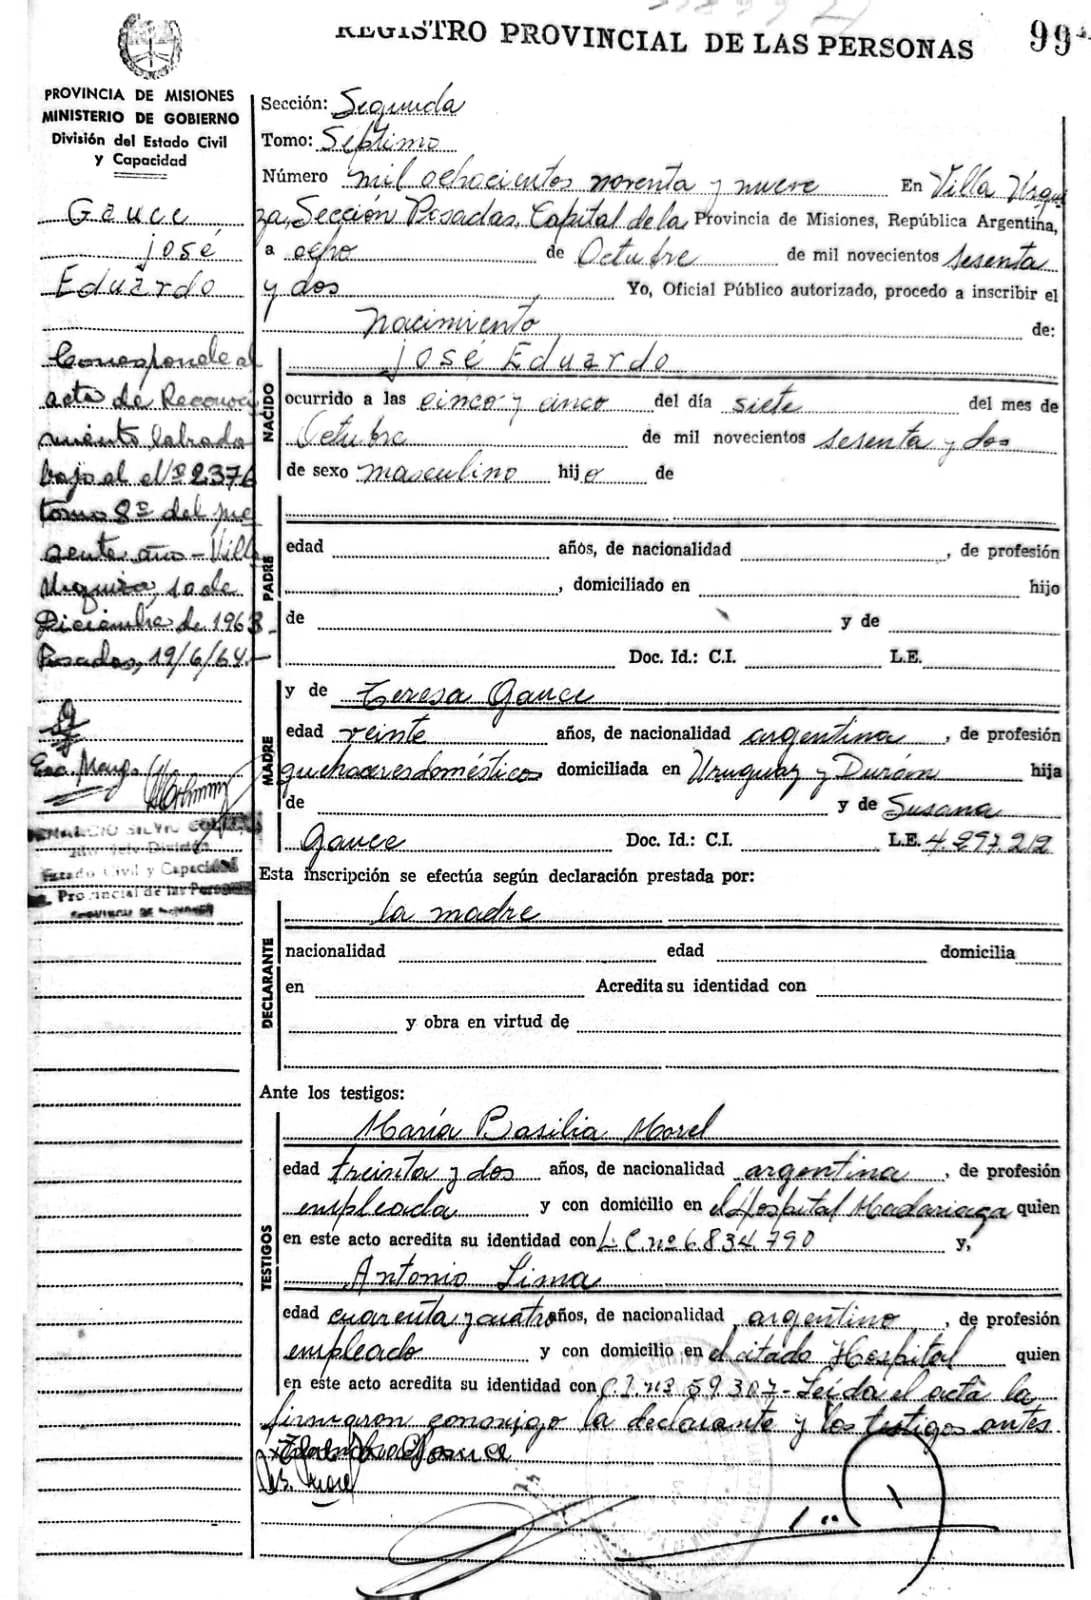 REGISTRO PROVINCIAL DE LAS PERSONAS
99
PROVINCIA DE MISIONES
MINISTERIO DE GOBIERNO
División del Estado Civil
y Capacidad
Gauce
José
Eduardo
Corresponde al
acta de Reconoci
miento labrada
bajo el Nº 2376
tomo 8º del pre
sente año - Villa
Urquiza, 10 de
Diciembre de 1963
Posadas, 19/6/64.-
Estado Civil y Capacidad
Provincial de las Personas
Sección: Segunda
Tomo: Séptimo
Número mil ochocientos noventa y nueve En Villa Urqui
za, Sección Posadas, Capital de la Provincia de Misiones, República Argentina,
a ocho de Octubre de mil novecientos sesenta
y dos Yo, Oficial Público autorizado, procedo a inscribir el
Nacimiento de:
NACIDO
José Eduardo
ocurrido a las cinco y cinco del día siete del mes de
Octubre de mil novecientos sesenta y dos
de sexo masculino hijo de
PADRE
edad años, de nacionalidad , de profesión
, domiciliado en hijo
de y de
Doc. Id.: C.I. L.E.
MADRE
y de Teresa Gauce
edad veinte años, de nacionalidad argentina, de profesión
quehaceres domésticos domiciliada en Uruguay y Durán hija
de y de Susana
Gauce Doc. Id.: C.I. L.E. 4.297.212
Esta inscripción se efectúa según declaración prestada por:
DECLARANTE
la madre
nacionalidad edad domicilia
en Acredita su identidad con
y obra en virtud de
Ante los testigos:
TESTIGOS
María Basilia Morel
edad treinta y dos años, de nacionalidad argentina, de profesión
empleada y con domicilio en el Hospital Madariaga quien
en este acto acredita su identidad con L.C. nº 6.834.790 y,
Antonio Lima
edad cuarenta y cuatro años, de nacionalidad argentino, de profesión
empleado y con domicilio en el citado Hospital quien
en este acto acredita su identidad con C.I. nº 59.307- Leída el acta la
firmaron conmigo la declarante y los testigos antes